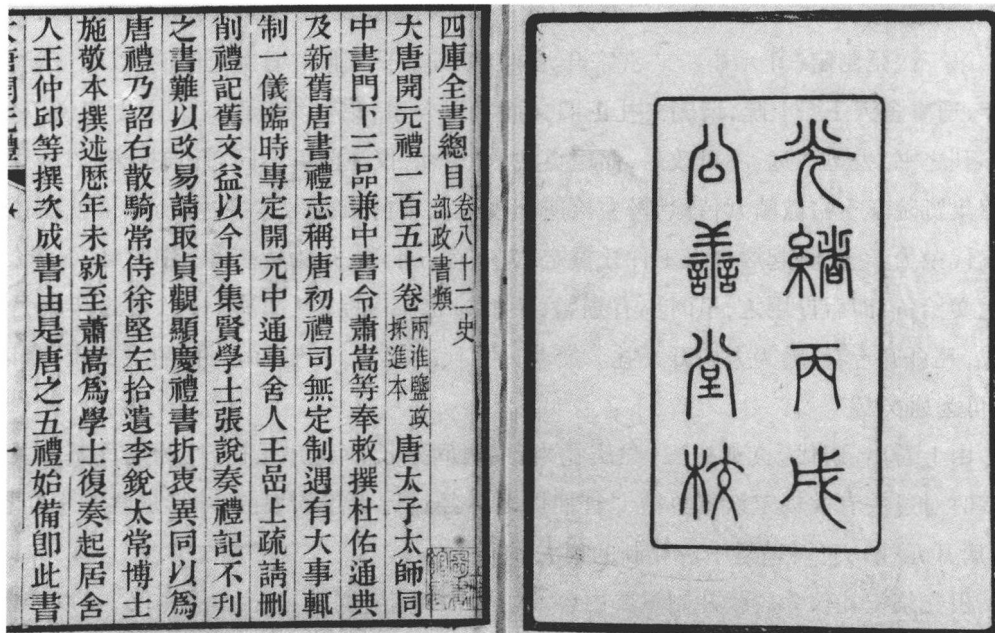 光緒丙戌
公善堂校
四庫全書總目 卷八十二史
部政書類
大唐開元禮一百五十卷 兩淮鹽政
採進本 唐太子太師同
中書門下三品兼中書令蕭嵩等奉敕撰杜佑通典
及新舊唐書禮志稱唐初禮司無定制遇有大事輒
制一儀臨時專定開元中通事舍人王嵒上疏請刪
削禮記舊文益以今事集賢學士張說奏禮記不刊
之書難以改易請取貞觀顯慶禮書折衷異同以爲
唐禮乃詔右散騎常侍徐堅左拾遺李銳太常博士
施敬本撰述歷年未就至蕭嵩爲學士復奏起居舍
人王仲邱等撰次成書由是唐之五禮始備卽此書
大唐開元禮 一